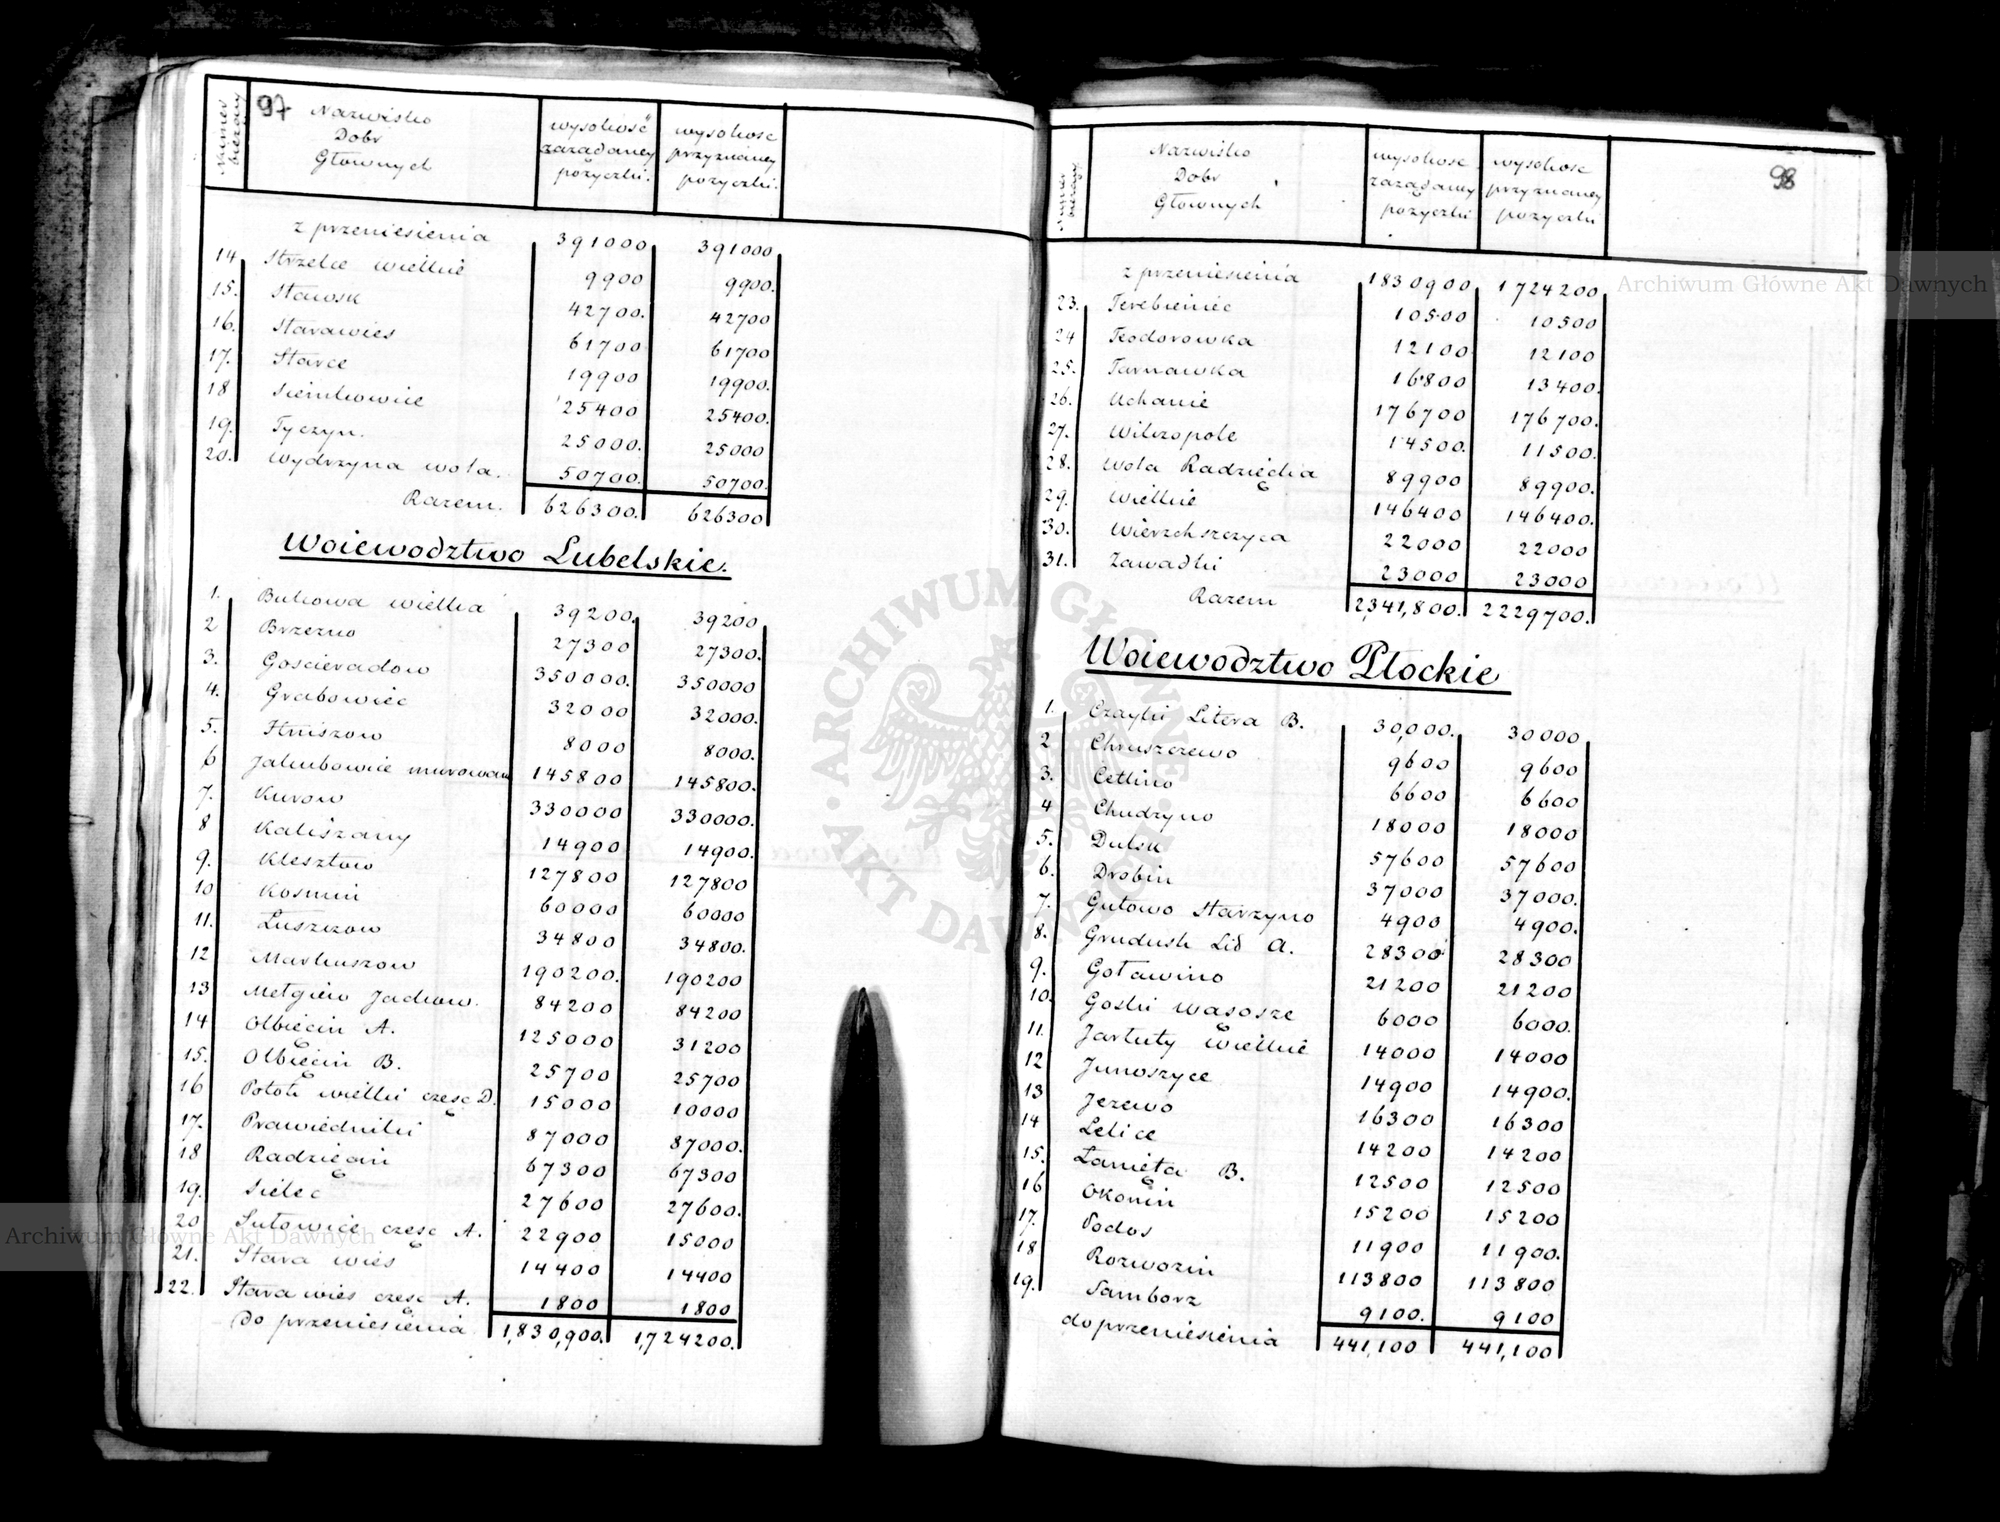 97
Numer bieżący
Nazwisko Dobr Głównych
wysokość zażądaney pożyczki.
wysokosc przyznaney pożyczki.
z przeniesienia 391000 391000
14 Strzelce wielkie 9900 9900.
15. Stawsk 42700. 42700
16. Starawies 61700 61700
17. Starce 19900 19900.
18 Siemkowice 25400 25400.
19. Tyczyn. 25000. 25000
20. Wydrzyna wola. 50700. 50700.
Razem. 626300. 626300
Woiewodztwo Lubelskie.
1. Bukowa wielka 39200. 39200
2 Brzezno 27300 27300.
3. Goscieradow 350000. 350000
4. Grabowiec 32000 32000.
5. Hniszow 8000 8000.
6 Jakubowice murowan 145800 145800.
7. Kurow 330000 330000.
8 Kaliszany 14900 14900.
9. Klesztow 127800 127800
10 Kosmin 60000 60000
11. Łuszczow 34800 34800.
12 Markuszow 190200. 190200
13 Mełgiew Jackow. 84200 84200
14 Olbięcin A. 125000 31200
15. Olbięcin B. 25700 25700
16 Potok wielki częsc D. 15000 10000
17. Prawiedniki 87000 87000.
18 Radzięcin 67300 67300
19. Sielec 27600 27600.
20 Sułowice częsc A. 22900 15000
21. Stara wies 14400 14400
22. Stara wies częsc A. 1800 1800
Do przeniesienia 1,830,900. 1,724200.
98
Numer bieżący
Nazwisko Dobr Głownych
wysokosc zażądaney pożyczki
wysokosc przyznaney pożyczki
z przeniesienia 1830900 1724200
23. Terebieniec 10500 10500
24 Teodorowka 12100 12100
25. Tarnawka 16800 13400.
26. Uchanie 176700 176700.
27. Wilczopole 14500. 11500.
28. Wola Radzięcka 89900 89900.
29. Wielkie 146400 146400.
30. Wierzchszczyca 22000 22000
31. Zawadki 23000 23000
Razem 2341,800. 2229700.
Woiewodztwo Płockie
1. Czayki Litera B. 30,000. 30000
2. Chruszczewo 9600 9600
3. Cetlino 6600 6600
4 Chudzyno 18000 18000
5. Dulsk 57600 57600
6. Drobin 37000 37000.
7. Gutowo Starzyno 4900 4900.
8. Grudusk Lit A. 28300 28300
9. Goławino 21200 21200
10. Goski wąsosze 6000 6000.
11. Jarluty Wielkie 14000 14000
12 Junoszyce 14900 14900.
13 Jezewo 16300 16300
14 Lelice 14200 14200
15. Łanięta B. 12500 12500
16 Okonin 15200 15200
17. Podos 11900 11900.
18 Rozwozin 113800 113800
19. Samborz 9100. 9100
do przeniesienia 441,100 441,100
Archiwum Główne Akt Dawnych
Archiwum Główne Akt Dawnych
ARCHIWUM GŁÓWNE · AKT DAWNYCH ·